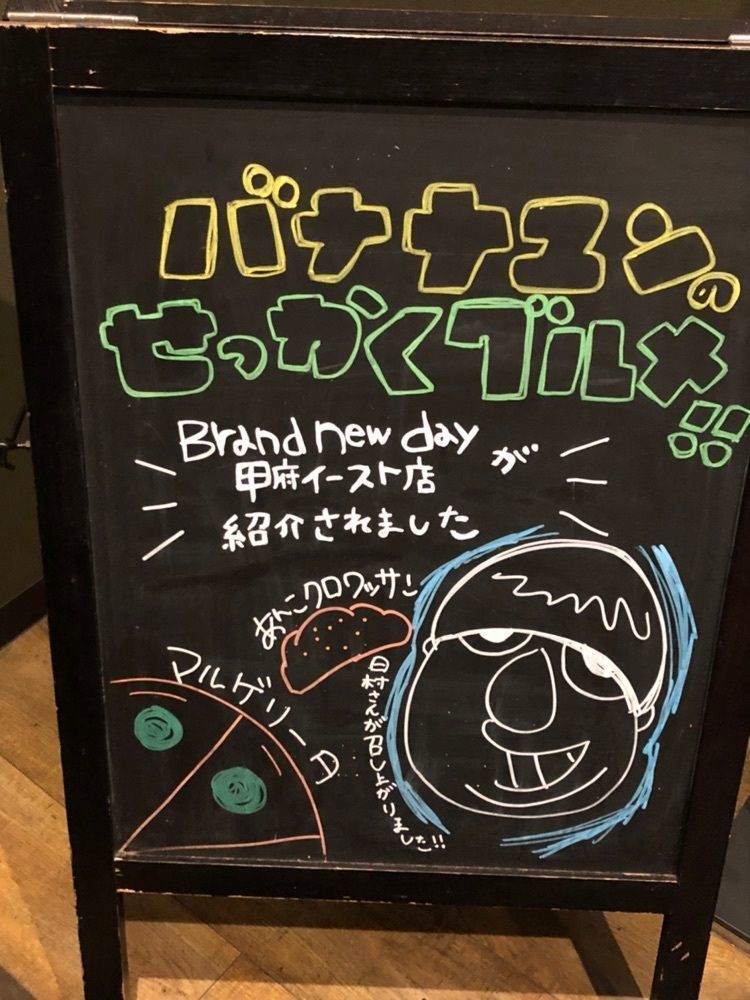 バナナマンの
せっかくグルメ!!
Brand new dayが
甲府イースト店
紹介されました
あんこクロワッサン
マルゲリータ
日村さんが召し上がりました!!